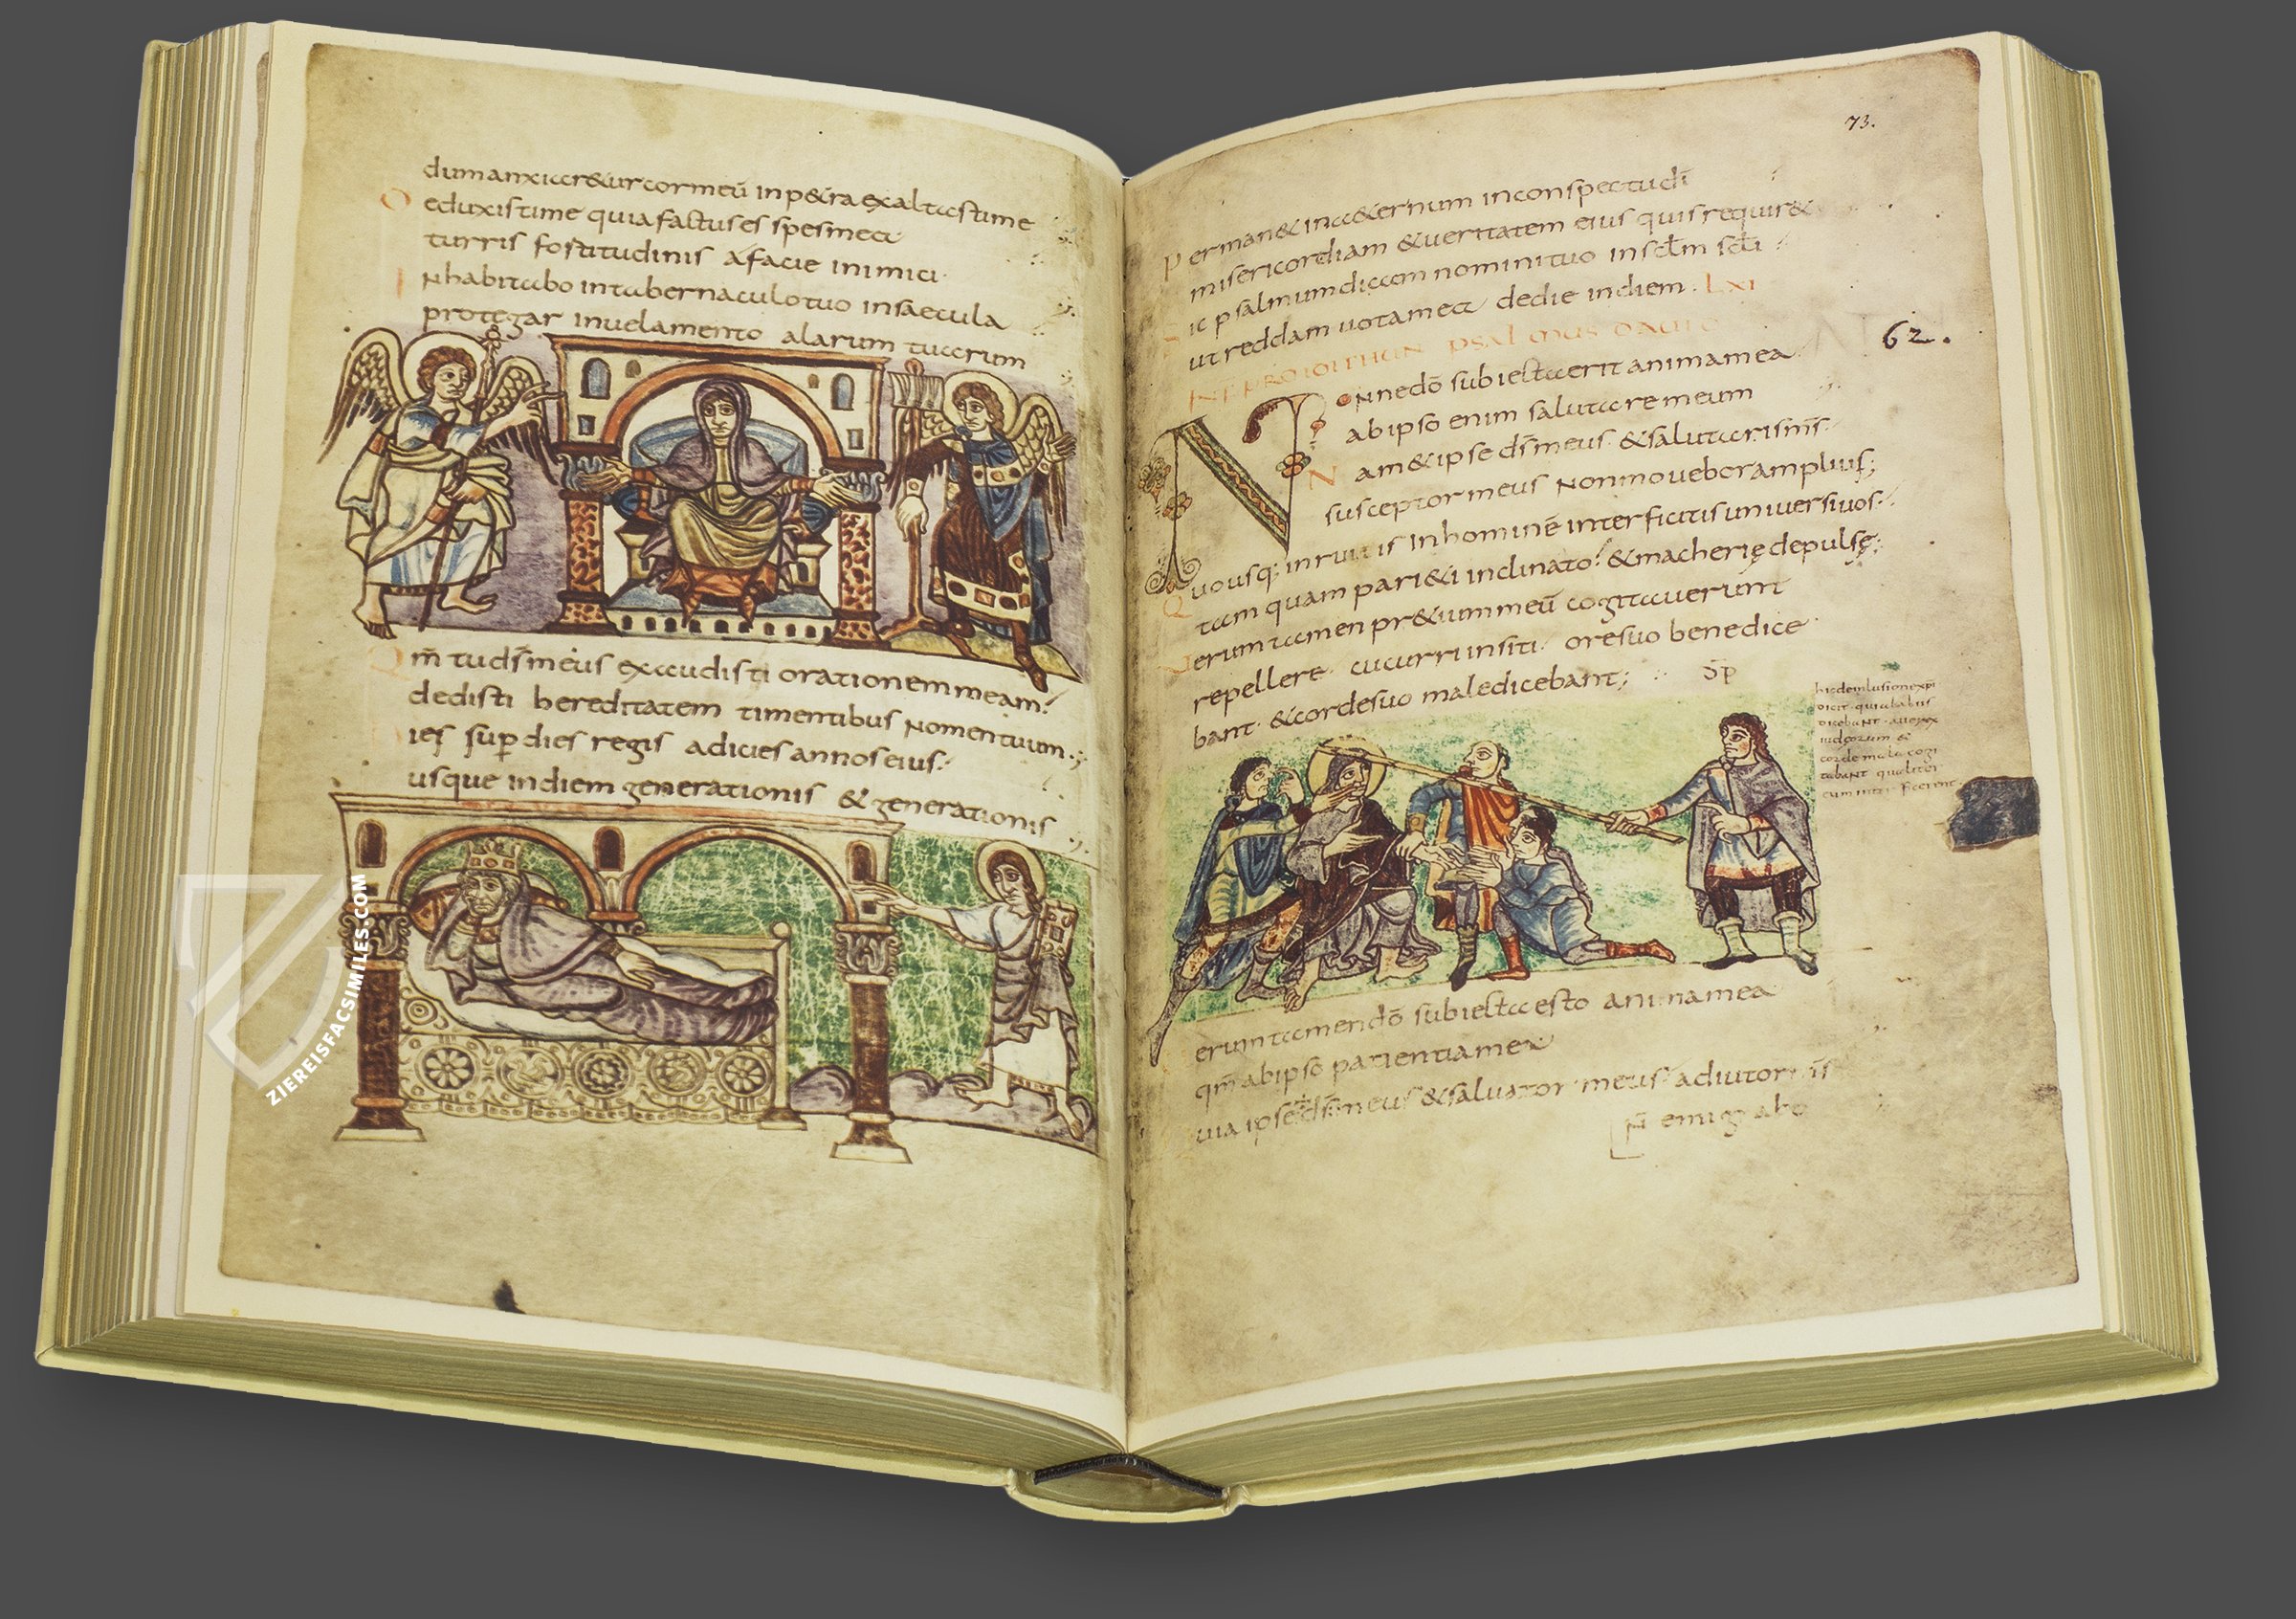 dum anxiaret(ur) cor meū in petra exaltasti me
eduxisti me quia factus es spes mea
turris fortitudinis a facie inimici
Inhabitabo in tabernaculo tuo in saecula
protegar in velamento alarum tuarum
Qm̄ tu ds̄ meus exaudisti orationem meam
dedisti hereditatem timentibus nomen tuum
ies sup dies regis adicies annos eius
usque in diem generationis & generationis
ZIEREISFACSIMILES.COM
73.
Perman& in a&ernum in conspectu di
misericordiam & ueritatem eius quis requir&
Sic psalmum dicam nomini tuo in sclm scli
ut reddam uota mea de die in diem. LXI
PSALMUS DAUID
62.
Nonne dō subiecta erit anima mea
ab ipso enim salutare meum
Nam & ipse ds̄ meus & salutaris ms̄
susceptor meus non mouebor amplius;
Quousq; inruitis in hominē interficitis uniuersi uos
tam quam pari&i inclinato & macherię depulsę;
Uerum tamen pr&ium meū cogitauerunt
repellere cucurri in siti ore suo benedice
bant & corde suo maledicebant;
hic de inlusione xpi
dicit quia labiis
dicebant aue rex
iudęorum &
corde mala cogi
tabant qualiter
eum interficerent
erum tamen dō subiecta esto anima mea
qm̄ ab ipso patientia mea
uia ipse ds̄ meus & saluator meus adiutor ms̄
n̄ emigrabo